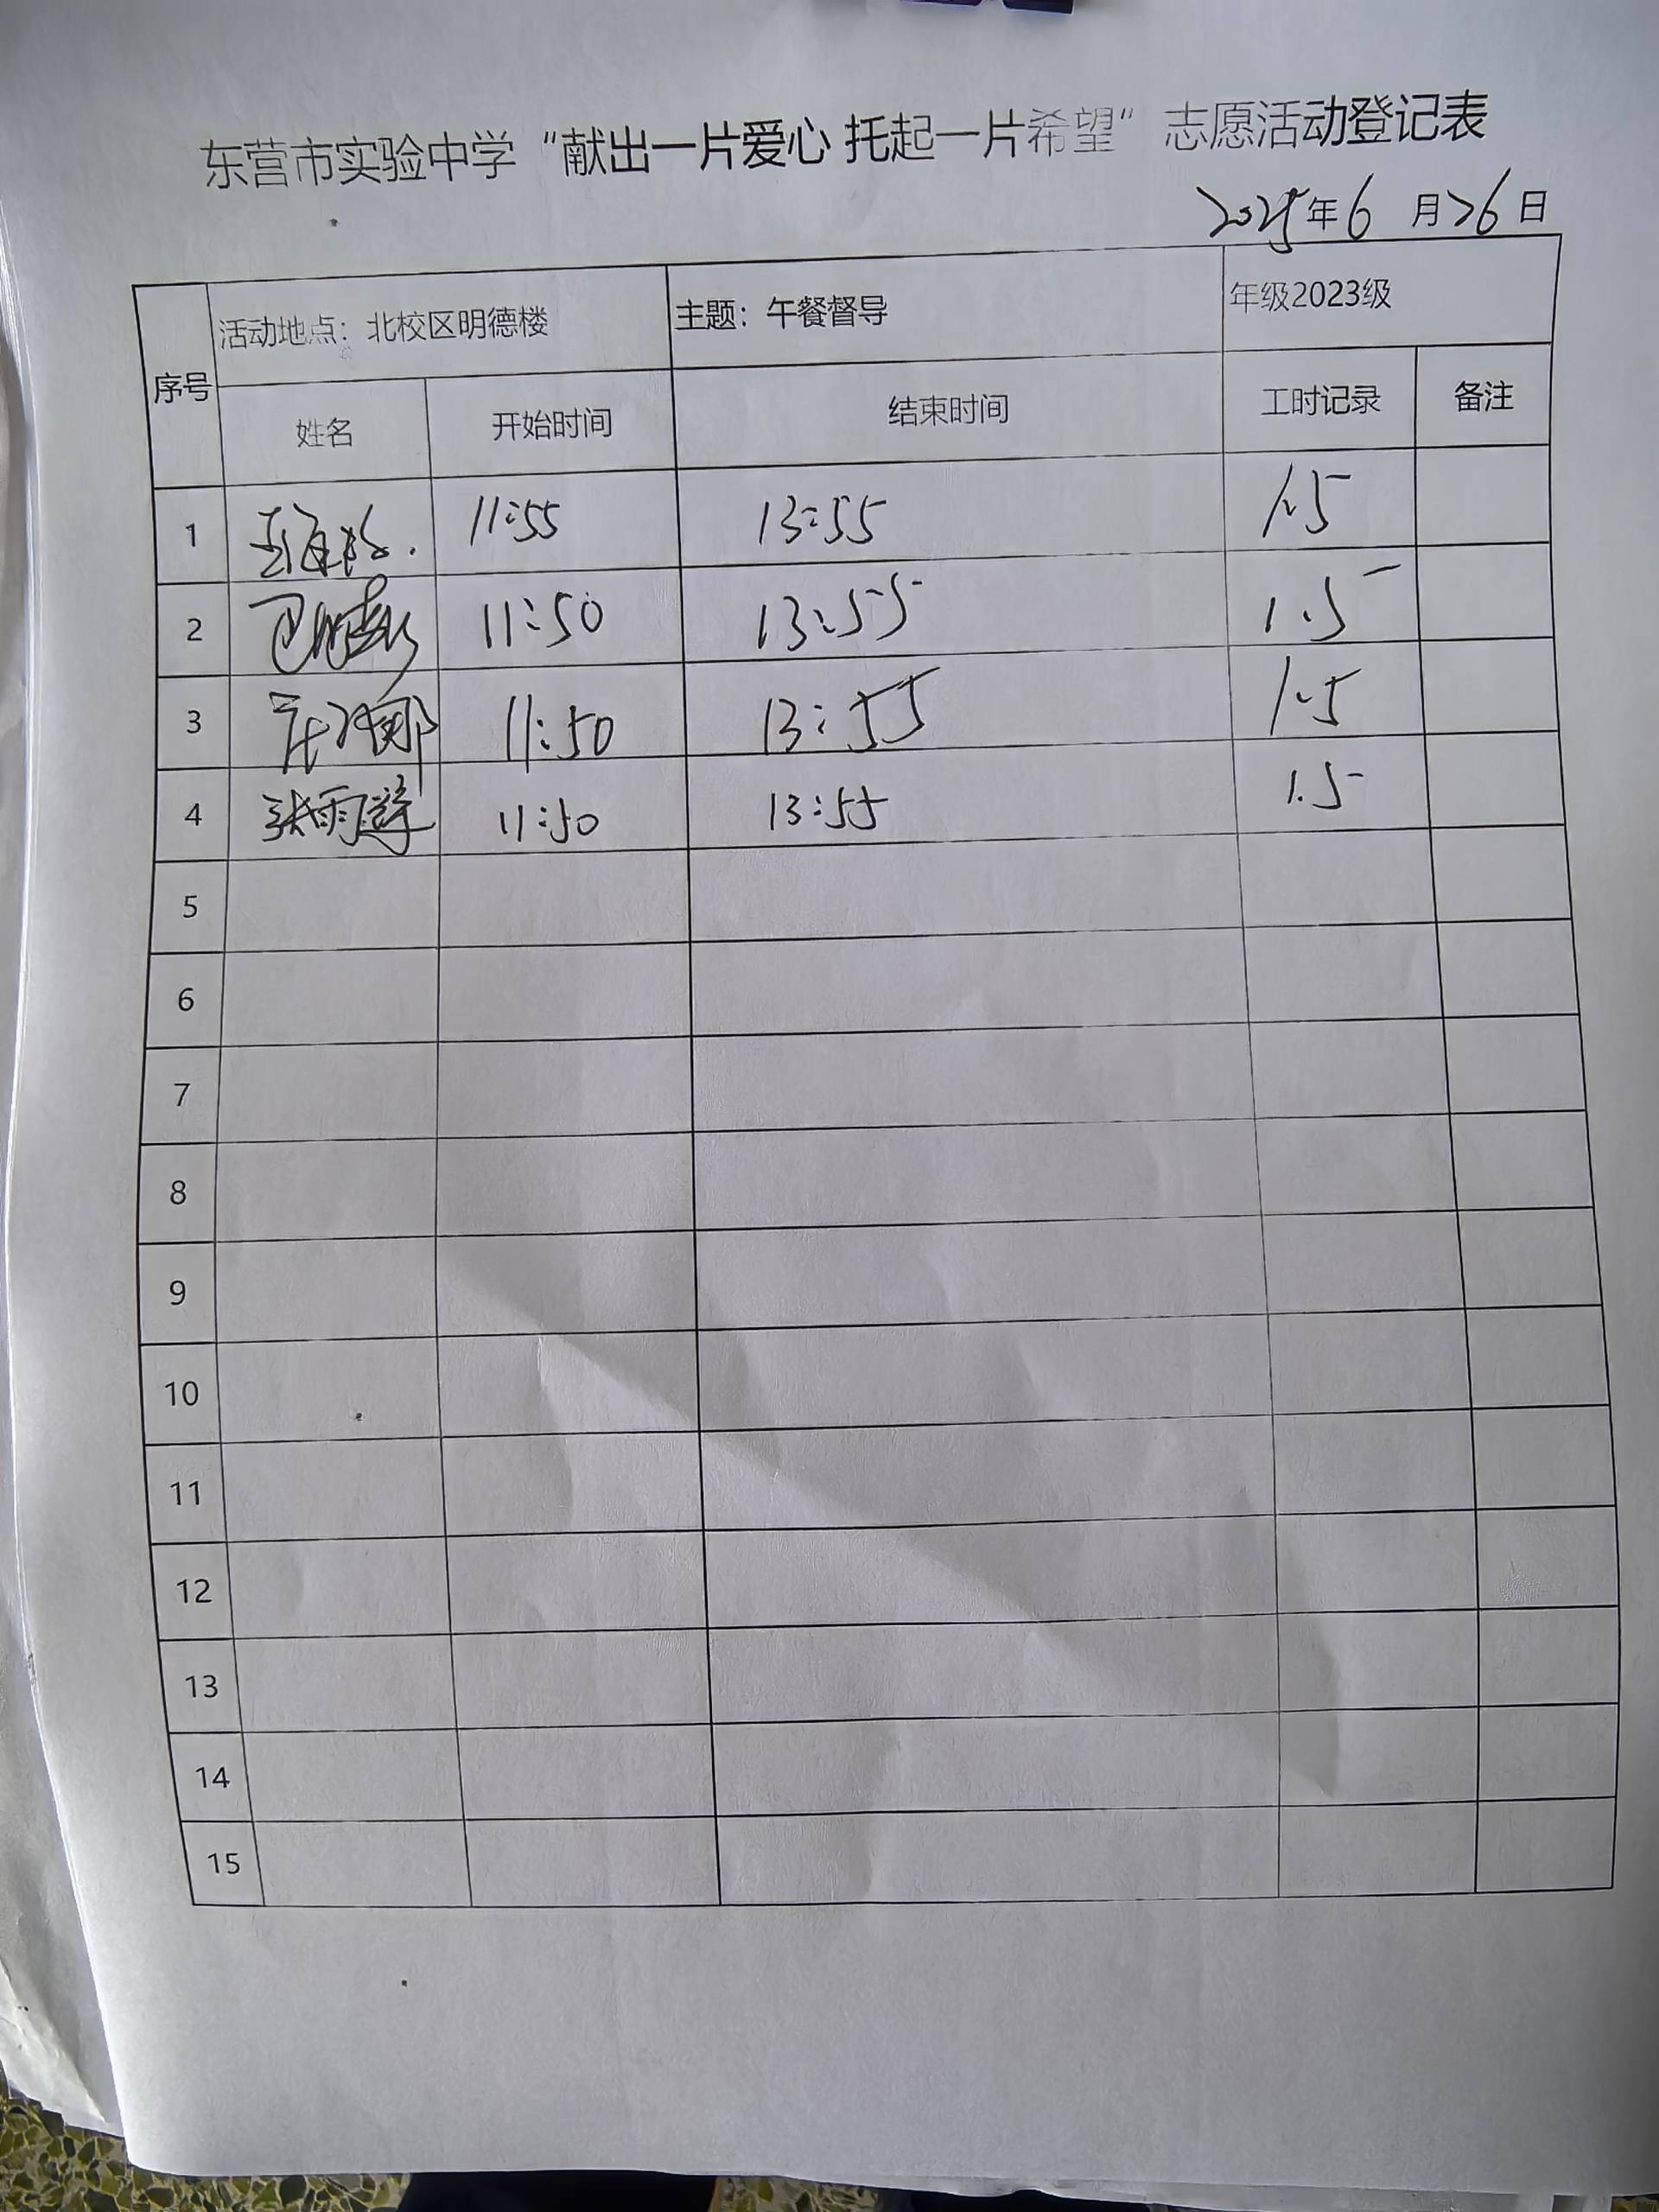 东营市实验中学“献出一片爱心 托起一片希望”志愿活动登记表
2025年6月26日
序号 活动地点：北校区明德楼 主题：午餐督导 年级2023级
姓名 开始时间 结束时间 工时记录 备注
1 11:55 13:55 1.5
2 11:50 13:55 1.5
3 11:50 13:55 1.5
4 张雨 11:50 13:55 1.5
5
6
7
8
9
10
11
12
13
14
15